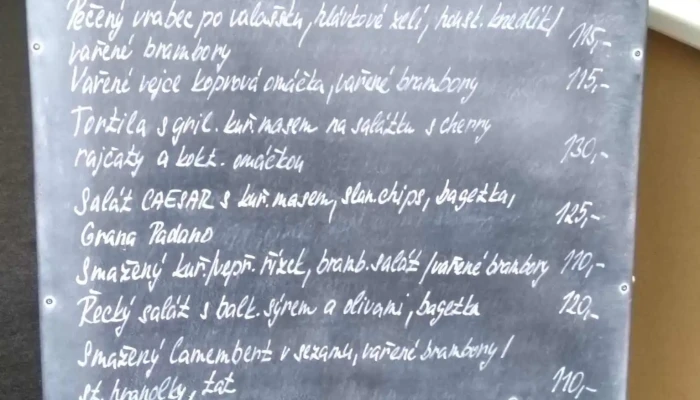 Pečený vrabec po valašsku, hlávkové zelí, houst. knedlík/
vařené brambory 115,-
Vařené vejce koprová omáčka, vařené brambory 115,-
Tortila s gril. kuř. masem na salátku s cherry
rajčaty a kokt. omáčkou 130,-
Salát CAESAR s kuř. masem, slan. chips, bagetka,
Grana Padano 125,-
Smažený kuř./vepř. řízek, bramb. salát /vařené brambory 110,-
Řecký salát s balk. sýrem a olivami, bagetka 120,-
Smažený Camembert v sezamu, vařené brambory /
st. hranolky, tat 110,-